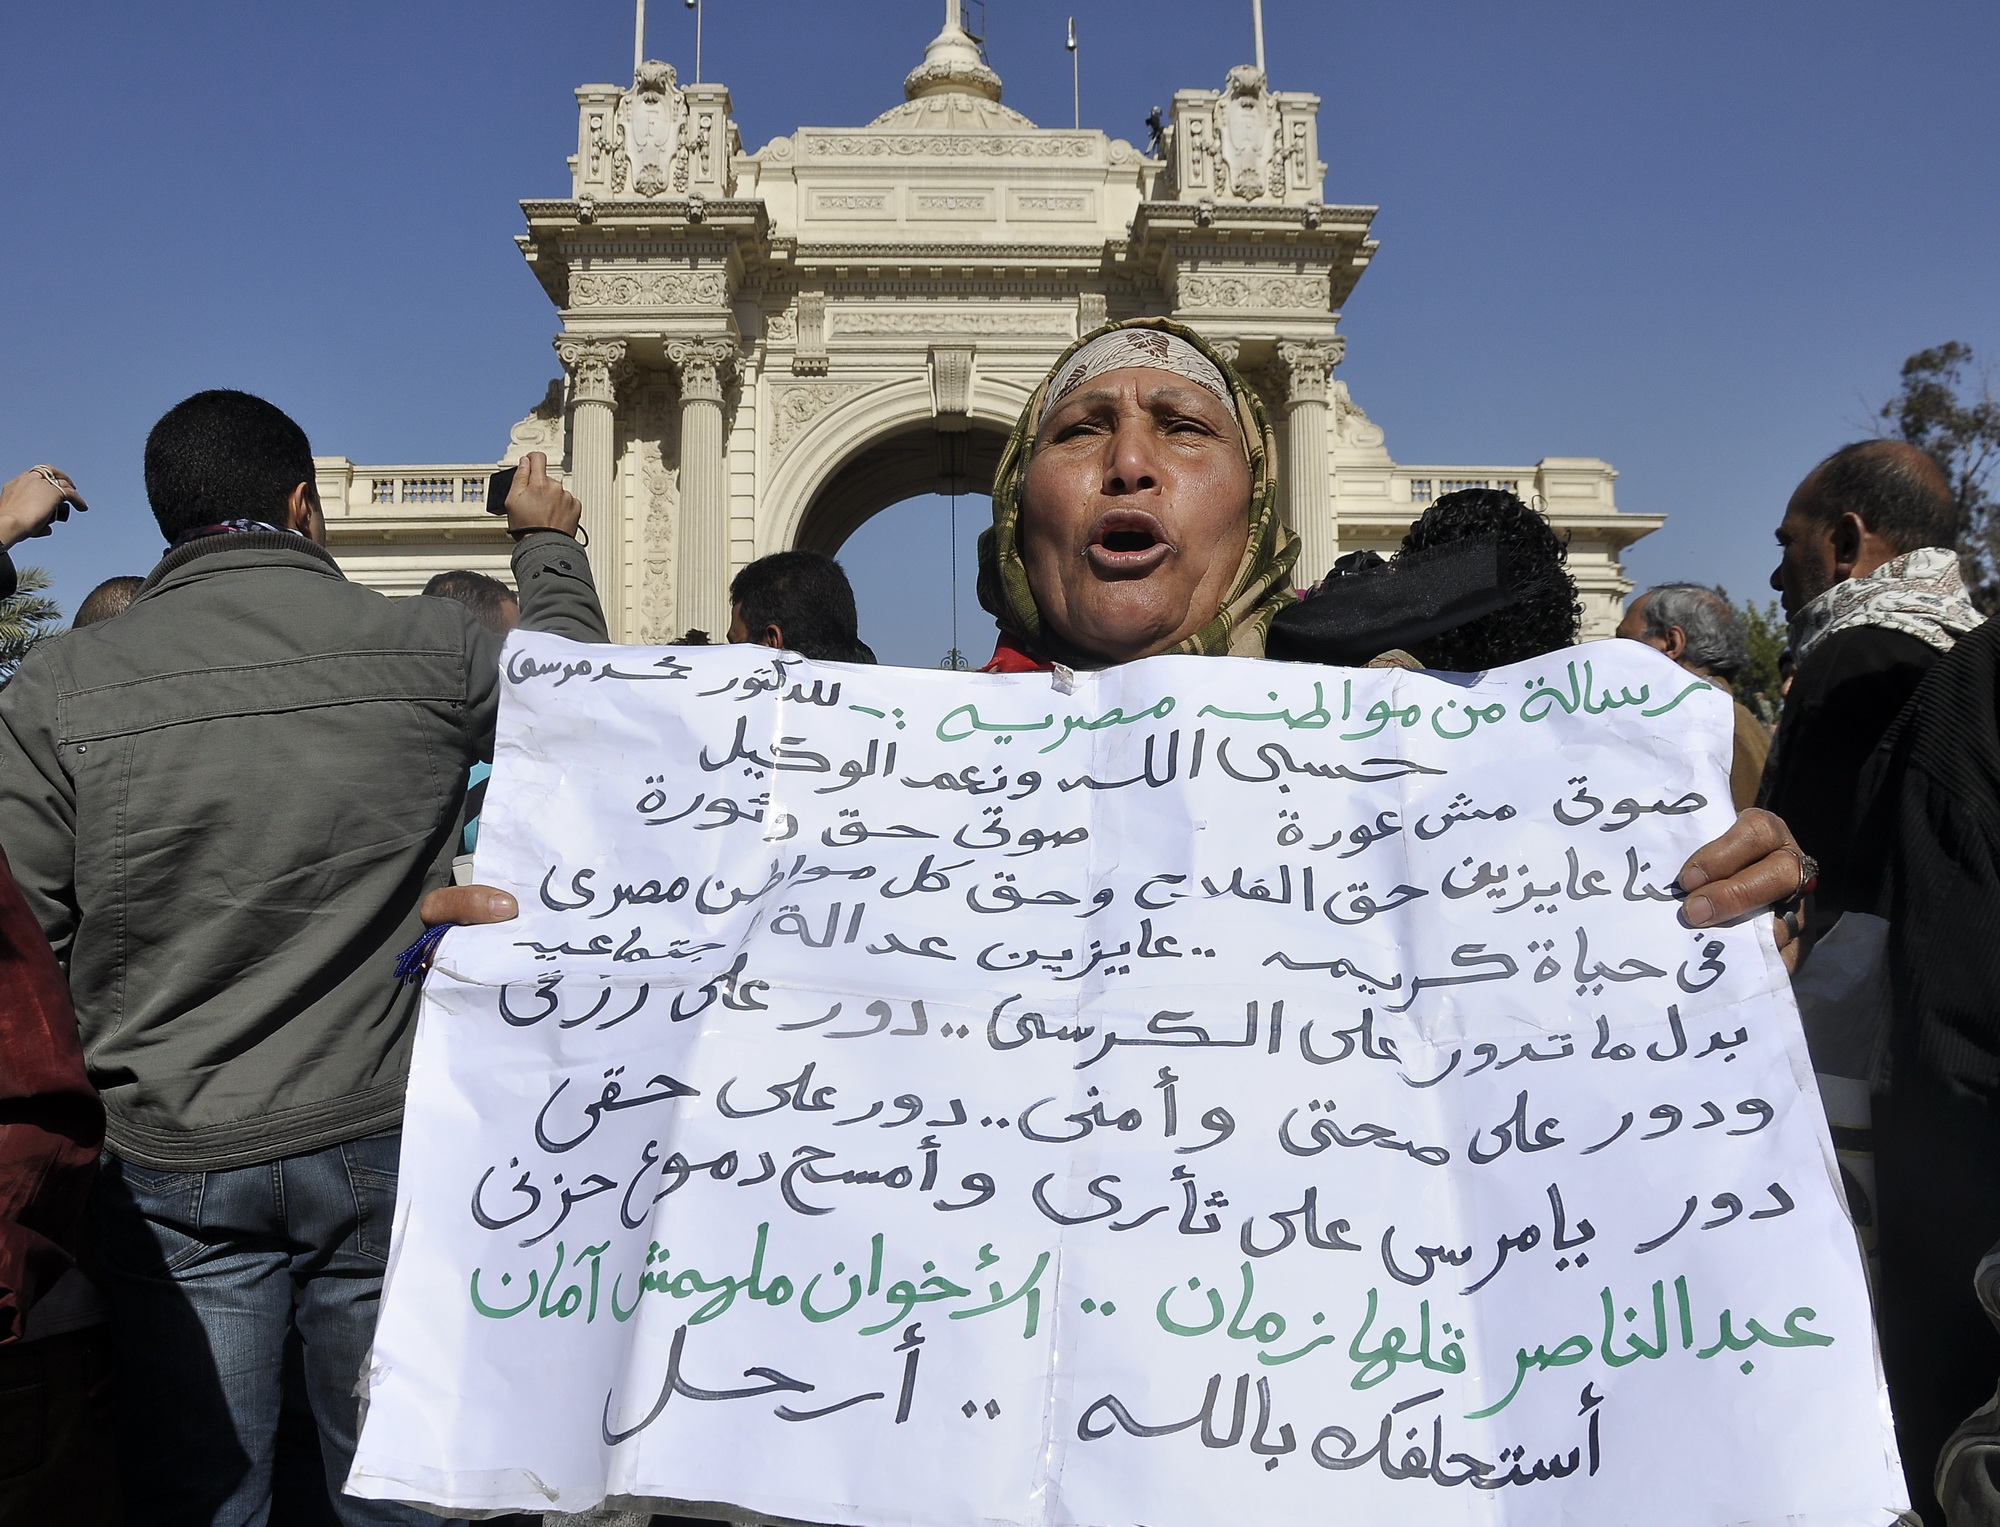 رسالة من مواطنه مصريه :- للدكتور محمد مرسى
حسبى الله ونعم الوكيل
صوتى مش عورة صوتى حق وثورة
حنا عايزين حق الفلاح وحق كل مواطن مصرى
فى حياة كريمه .. عايزين عدالة جتماعيه
بدل ما تدور على الكرسى .. دور على رزقى
ودور على صحتى وأمنى .. دور على حقى
دور يا مرسى على ثأرى وأمسح دموع حزنى
عبد الناصر قلها زمان .. الأخوان ملهمش آمان
أستحلفك بالله .. أرحل